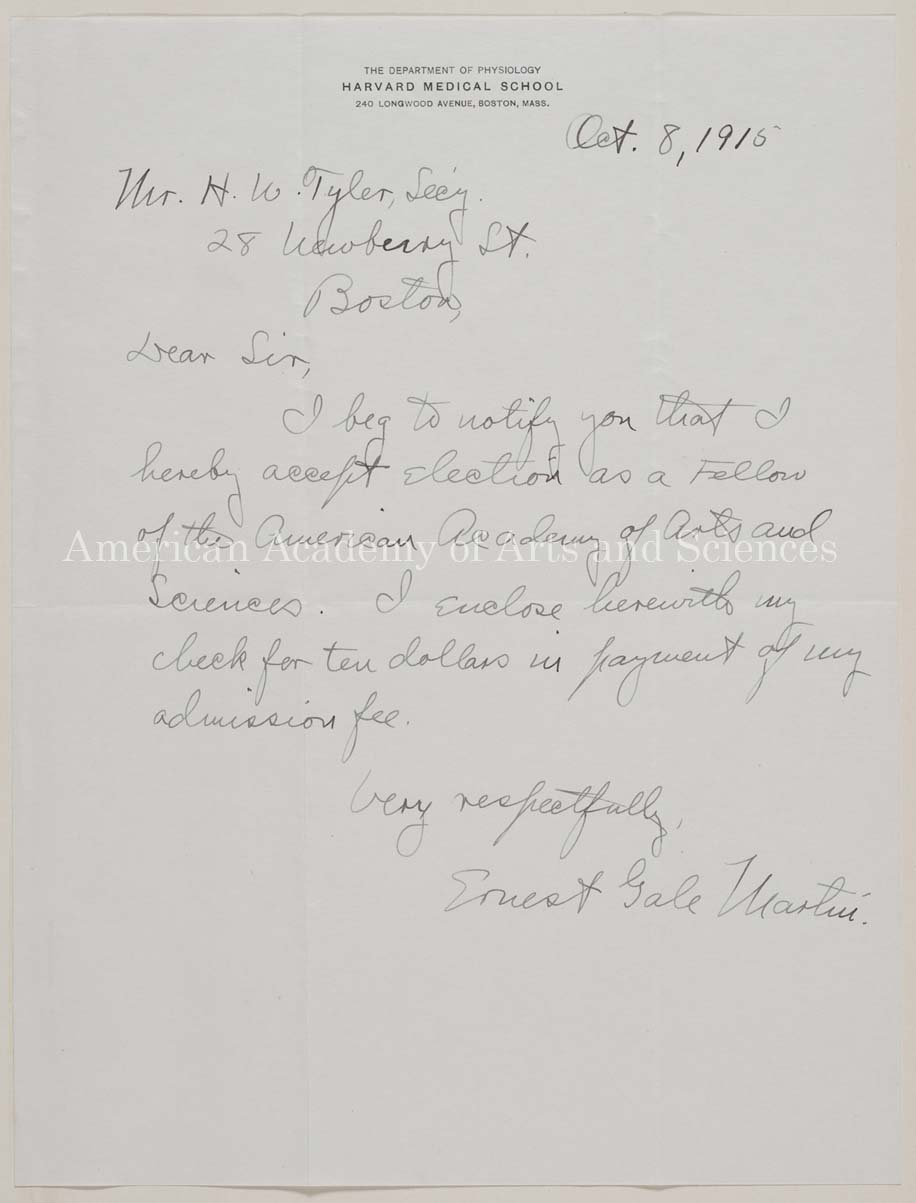 THE DEPARTMENT OF PHYSIOLOGY
HARVARD MEDICAL SCHOOL
240 LONGWOOD AVENUE, BOSTON, MASS.
Oct. 8, 1915
Mr. H. W. Tyler, Sec'y.
28 Newberry St.
Boston,
Dear Sir,
I beg to notify you that I
hereby accept election as a Fellow
of the American Academy of Arts and
American Academy of Arts and Sciences
Sciences. I enclose herewith my
check for ten dollars in payment of my
admission fee.
Very respectfully,
Ernest Gale Martin.